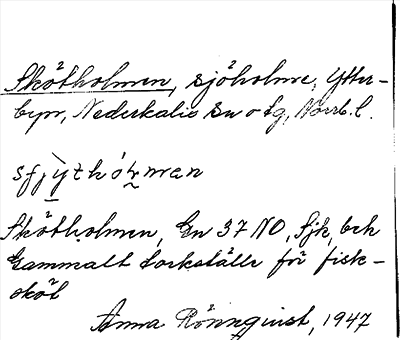 Skötholmen, sjöholme, Ytter-
byn, Nederkalix sn o tg, Norrb. l.
Skötholmen, En 37 NO, Sjk, beh
Gammalt torkställe för fisk-
sköt
Anna Rönnqvist, 1947